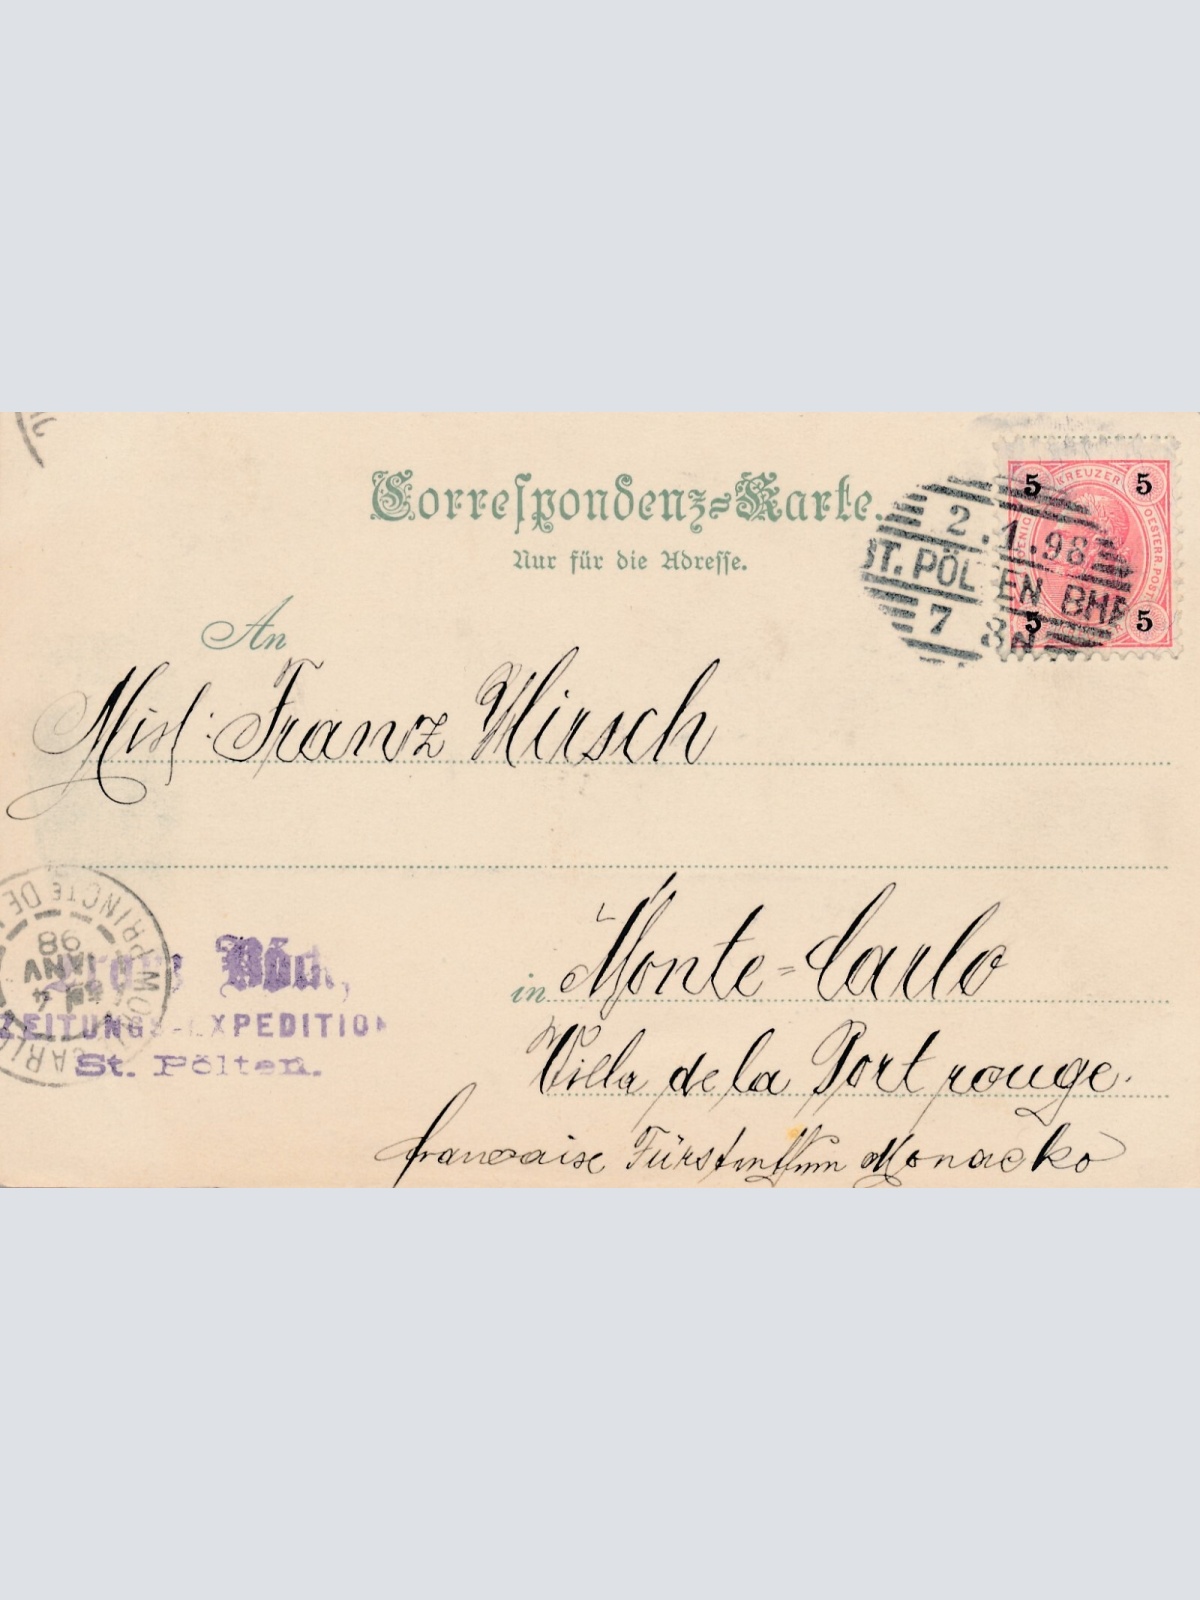 Correspondenz-Karte.
Nur für die Adresse.
5 KREUZER 5
OESTERR. POST
5 5
2.1.98
ST. PÖLTEN BHF
7 8 N
An
Franz Hirsch
in Monte-Carlo
Villa de la Port rouge.
francaise Fürstenthum Monacko
PRINCTE DE MO
4
JANV
98
CARLO
ZEITUNGS-EXPEDITION
St. Pölten.